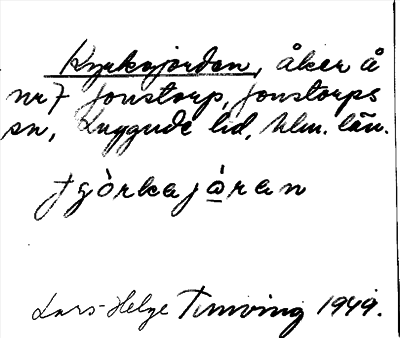 Kyrkojorden, åker å
nr 7 Jonstorp, Jonstorps
sn, Luggude hd, Mlm. län.
tjòrkajåran
Lars-Helge Tunving 1949.